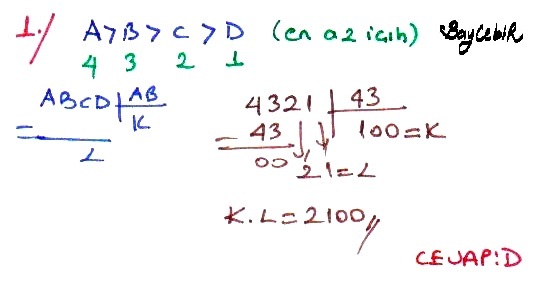 1./ A > B > C > D (en az için) BayCebiR
4 3 2 1
ABCD | AB
K
L
4321 | 43
- 43 100 = K
00 21 = L
K.L = 2100//
CEVAP: D